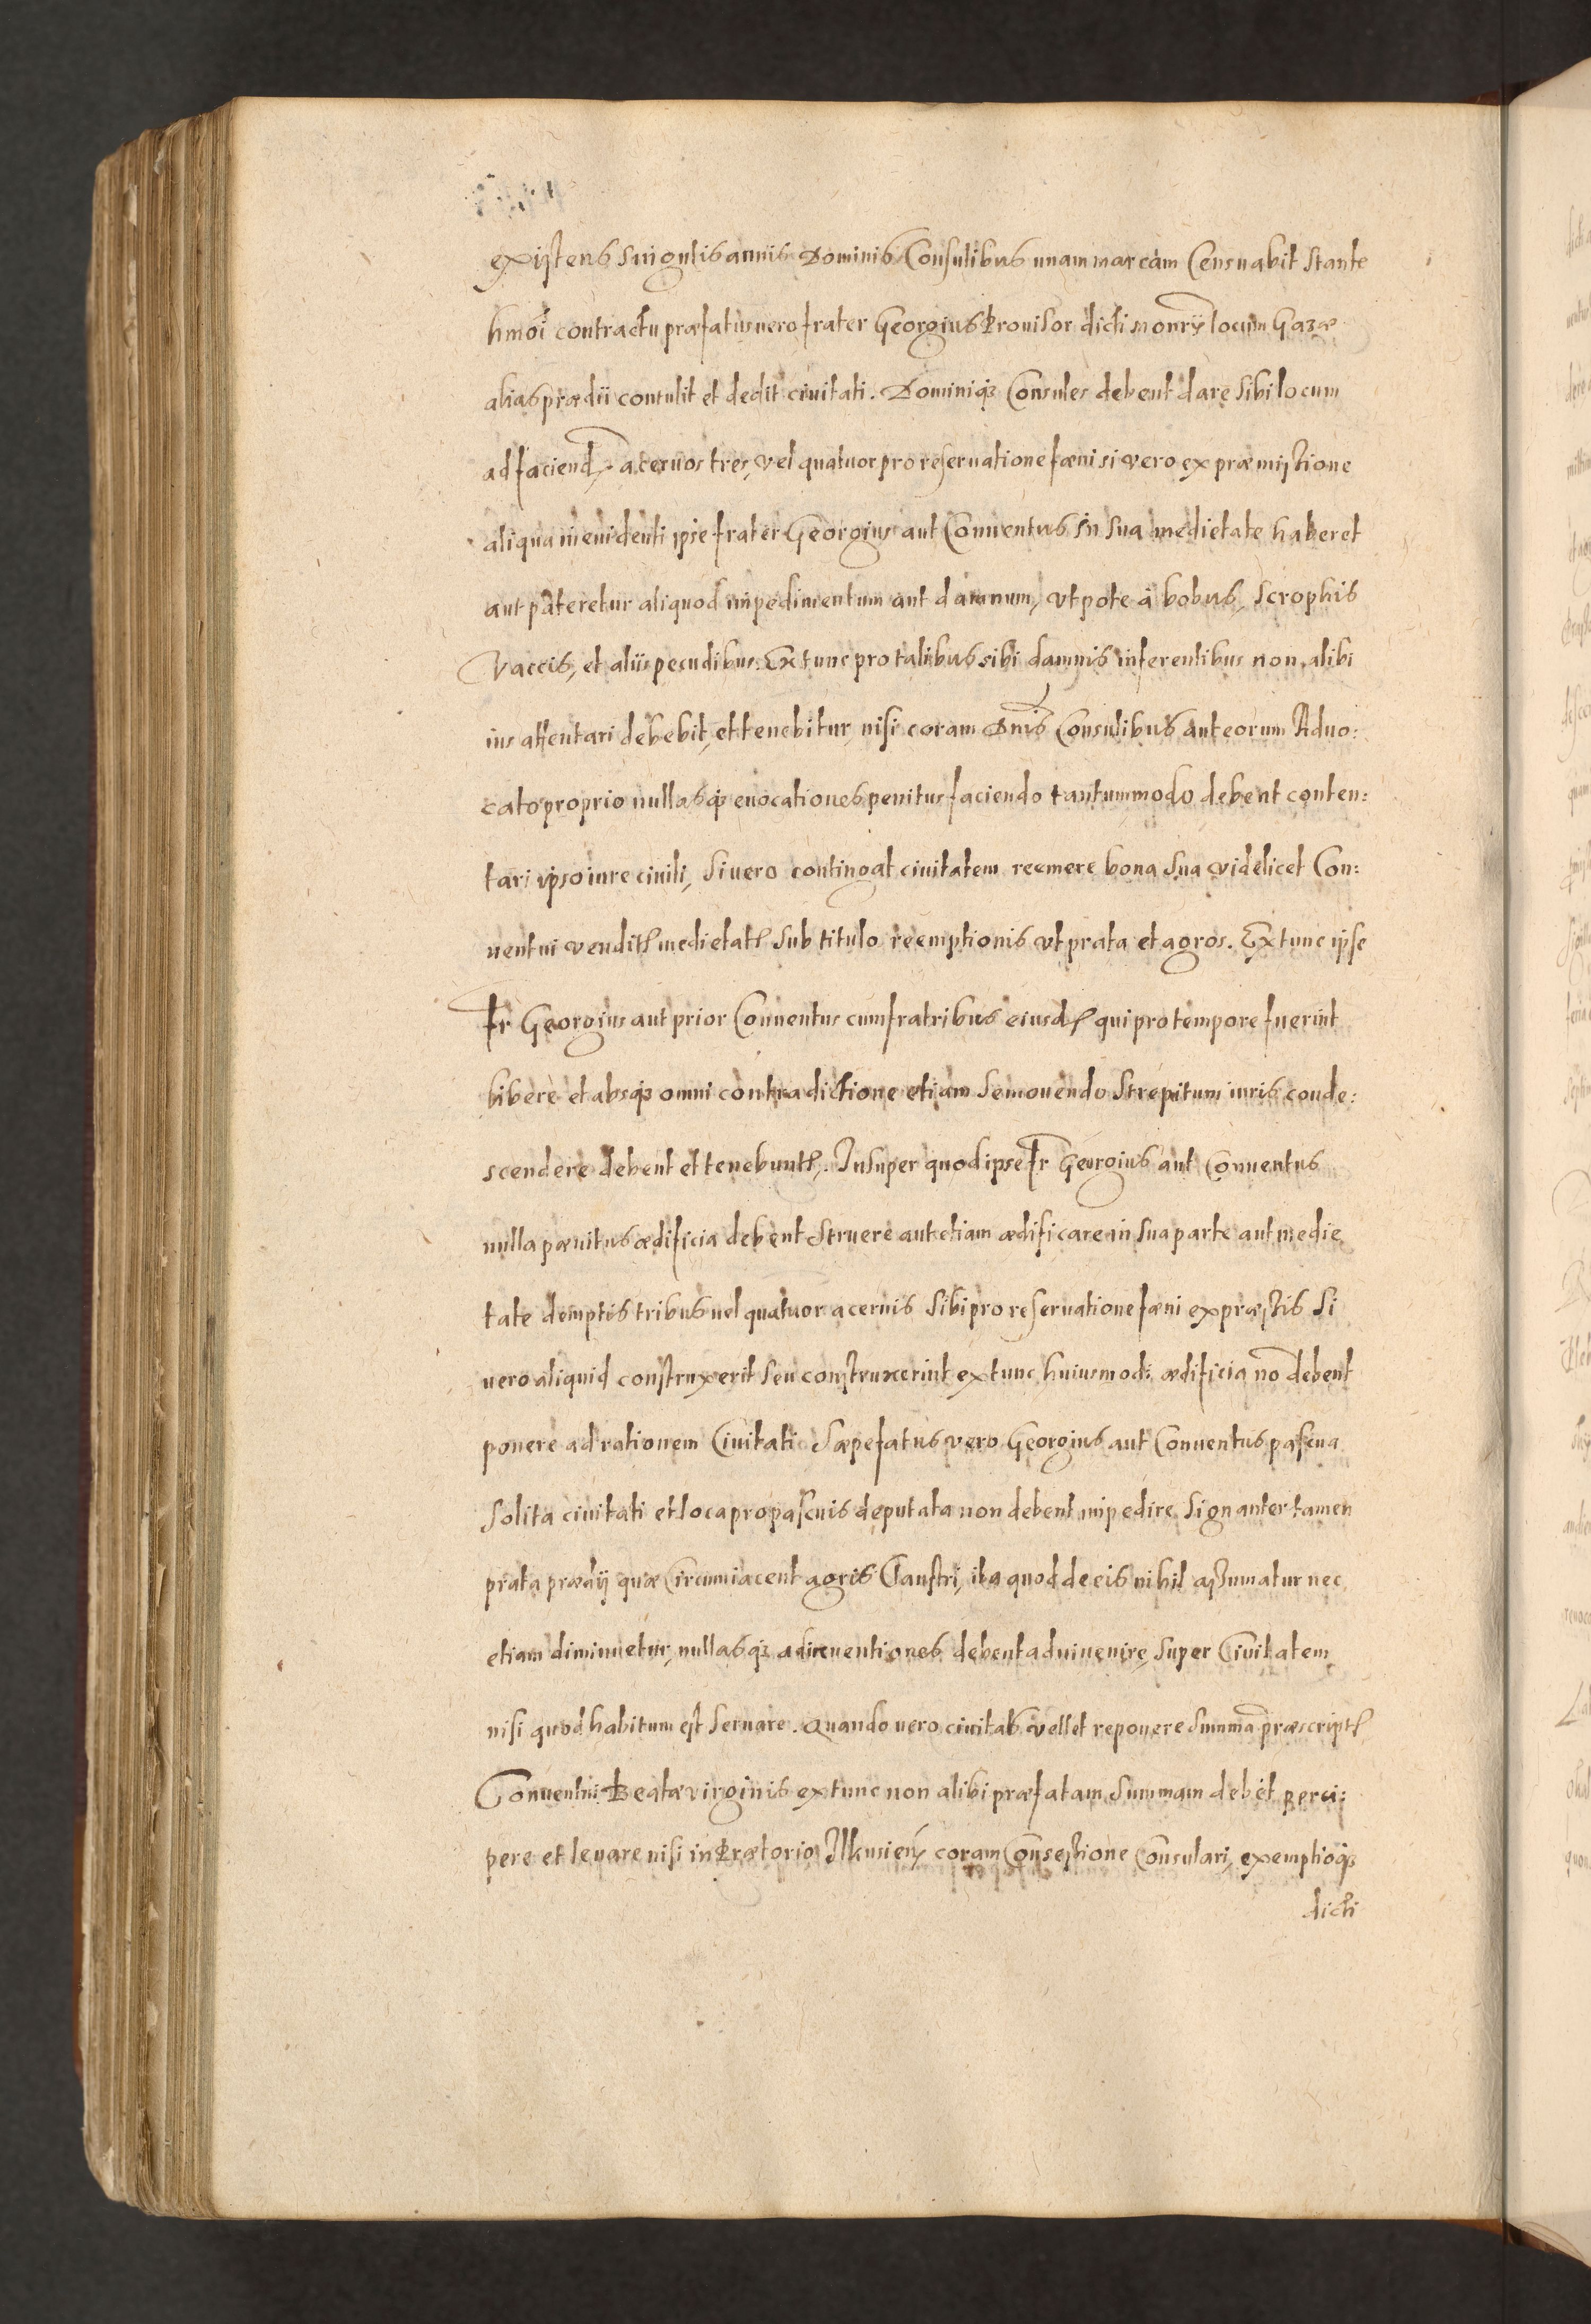 existens singulis annis Dominis Consulibus unam marcam Censuabit stante
hmoi contractu præfatus vero frater Georgius Prouisor dicti monrÿ locum Gazæ
alias prædii contulit et dedit ciuitati. Dominiq; Consules debent dare sibi locum
ad faciend. aceruos tres, vel quatuor pro reseruatione fæni si vero ex præmissione
aliqua in euidenti ipse frater Georgius aut Conuentus in sua medietate haberet
aut pateretur aliquod impedimentum aut damnum, vtpote à bobus, scrophis
Vaccis, et aliis pecudibus. Ex tunc pro talibus sibi damnis inferentibus non alibi
ius attentari debebit, et tenebitur, nisi coram Dnis Consulibus aut eorum Aduo:
cato proprio nullasq; euocationes penitus faciendo tantummodo debent conten:
tari ipso iure ciuili, Si vero contingat ciuitatem reemere bona sua videlicet Con:
uentui vendit medietat sub titulo reemptionis vt prata et agros. Ex tunc ipse
Fr Georgius aut prior Conuentus cum fratribus eiusd qui pro tempore fuerint
libere et absq; omni contradictione etiam semouendo strepitum iuris conde:
scendere debent et tenebunt. Insuper quod ipse Fr Georgius aut Conuentus
nulla pænitus ædificia debent struere aut etiam ædificare in sua parte aut medie
tate demptis tribus uel quatuor aceruis sibi pro reseruatione fæni expræssis Si
uero aliquid construxerit seu construxerint ex tunc huiusmodi ædificia nō debent
ponere ad rationem Ciuitati Sæpefatus vero Georgius aut Conuentus pascua
solita ciuitati et loca pro pascuis deputata non debent impedire, signanter tamen
prata prædij quæ Circumiacent agris Claustri, ita quod de eis nihil assumatur nec
etiam diminuetur, nullasq; adinuentiones debent adinuenire, super Ciuitatem
nisi quod habitum est seruare. Quando uero ciuitas vellet reponere summā præscript
Conuentui Beatæ virginis ex tunc non alibi præfatam summam debet perci:
pere et leuare nisi in Prætorio Ilkusien coram Consessione Consulari, exemptioq;
dicti